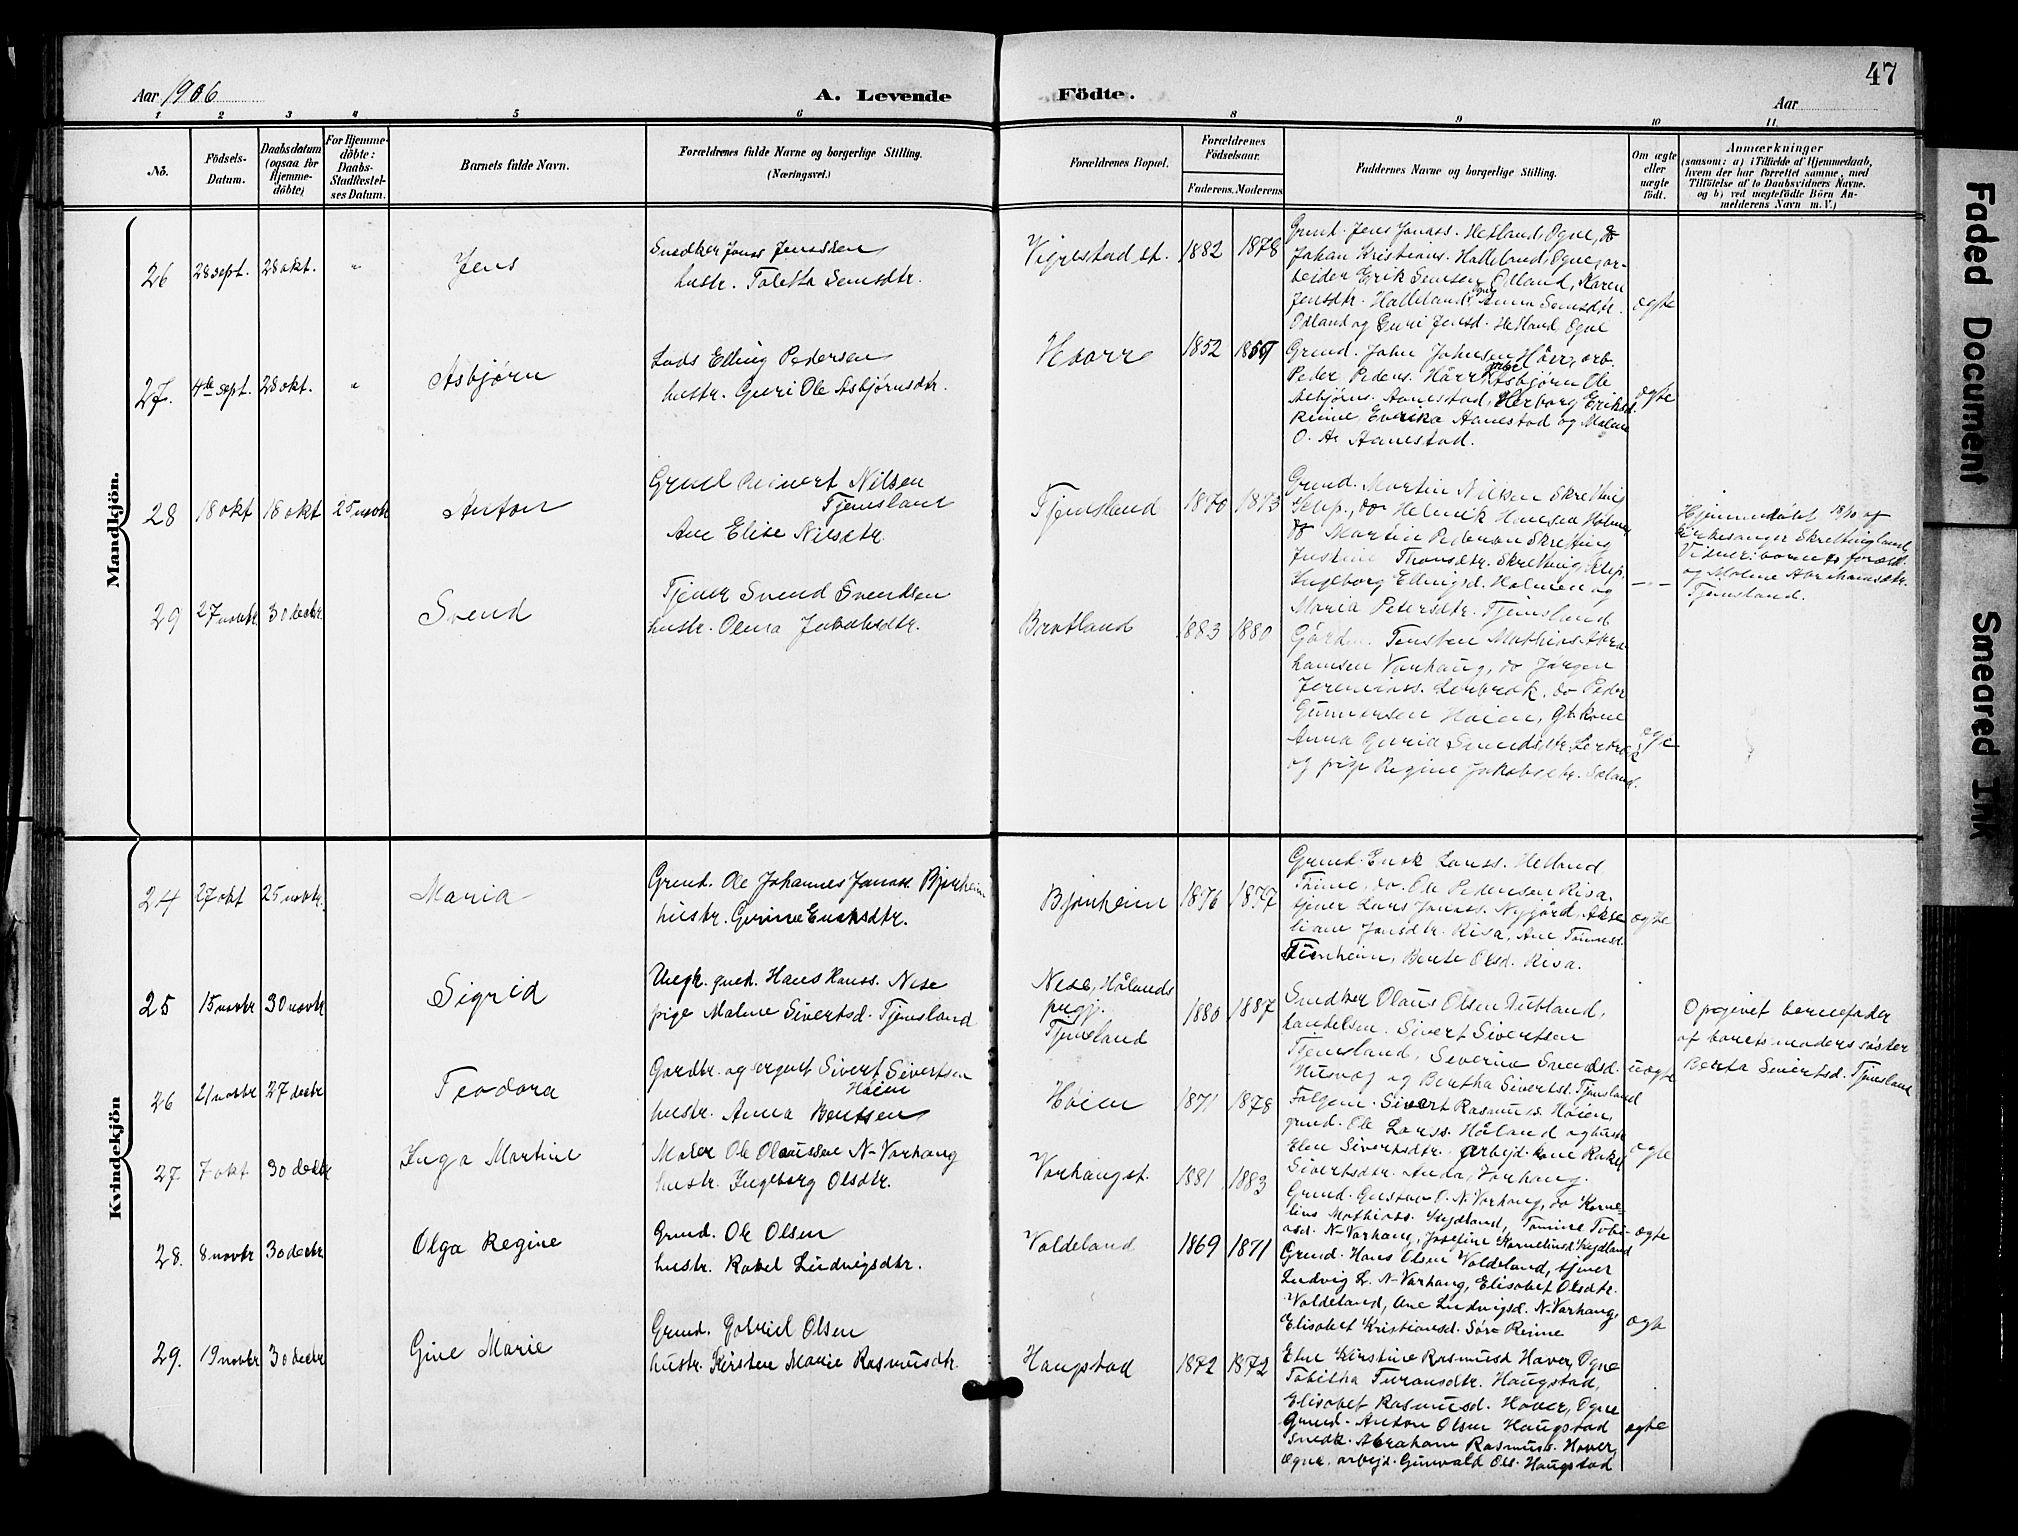 Aar 1906
A. Levende
Födte.
Aar
47
1 2 3 4 5 6
8 9 10 11.
No.
Födsels-Datum.
Daabsdatum (ogsaa for Hjemme-döbte)
For Hjemme-döbte: Daabs-Stadfæstel-ses Datum.
Barnets fulde Navn.
Forældrenes fulde Navne og borgerlige Stilling.
(Næringsvei.)
Forældrenes Bopæl.
Forældrenes Födselsaar.
Faderens. Moderens
Faddernes Navne og borgerlige Stilling.
Om ægte eller uægte födt.
Anmærkninger
(saasom: a) i Tilfælde af Hjemmedaab,
hvem der har forrettet samme, med
Tilföielse af to Daabsvidners Navne.
og b) ved uægtefödte Börn An-
melderens Navn m. V.)
Mandkjön.
26 28 sept. 28 okt. " Jens
Snedker Jonas Jenssen
hustr. Toletta Semsdtr.
Vigrestad st. 1882 1878
Grund. Jens Jonass. Hetland, Ogne, do
Johan Kristians. Halleland, Ogne, ar-
beider Erik Semsen Ødland, Karen
Jensdtr. Halleland, Anna Semsdtr.
Ødland og Guri Jensd. Hetland Ogne
ægte
27. 4de sept. 28 okt. " Asbjørn
Lods Elling Pedersen
hustr. Guri Ole Asbjørnsdtr.
1852
Grund. John Johnsen Hårr, arb.
Peder Peders. Hårr, Asbjørn Ole
Asbjørns. Aanestad, Herborg Eriksd.
Reime, Aanestad og Malene
O. As Aanestad.
ægte
28 18 okt 18 okt 25 novbr Anton
Grund Reinert Nilsen
Tjemsland
Ane Elise Nilsdtr.
Tjemsland 1870 1873
Grund. Martin Nilsen Skretting
Klep, do Helmik Hansen Holmen
do Martin Pedersen Skretting
Justine Thomsdtr. Skretting, Klep.
Ingeborg Ellingsd. Holmen og
Maria Petersdtr. Tjemsland
— " —
Hjemmedøbt 18/10 af
kirkesanger Skrettingland,
Vidner: barnets foræld.
og Malene Abrahamsdtr.
Tjemsland.
29 27 novbr. 30 decbr. Svend
Tjener Svend Svendsen
hustr. Olena Jakobsdtr.
Bratland 1883 1880
Gårdm. Torsten Mathias Abra-
hamsen Varhaug, do Jørgen
Jeremiass. Lerbrek, do Peder
Gunnarsen Høien, gb. kone
Anna Guria Svendsdtr. Lerbrek
og pige Regine Jakobsdtr. Sæland.
ægte
Kvindekjön
24 27 okt 25 novbr. Maria
Grund. Ole Johannes Jonass. Bjorheim
hustr. Gurine Eriksdtr.
Bjorheim 1876 1877
Grund. Erik Larss. Hetland
Time, do. Ole Pedersen Risa.
tjener Lars Jonass. Nygård, Akse
liane Jonsdtr. Risa, Ane Tønnesd.
Bjorheim, Berte Olsd. Risa.
ægte
25 15 novbr 30 novbr Sigrid
Ungk. grd. Hans Hanss. Nese
pige Malene Sivertsd. Tjemsland
Nese, Hålands
prgj.
Tjemsland
1880 1887
Snedker Olaus Olsen Dubland,
handelsm. Sivert Sivertsen
Tjemsland, Severine Svendsd.
og Bertha Sivertsd. Tjemsland
uægte
Opgivet barnefader
af barnets moders søster
Berta Sivertsd. Tjemsland
26 21 novbr 27 decbr Teodora
Gardbr. og Sivert Sivertsen
Høien
hustr. Anna Bentsen
Høien 1871 1878
Folgem. Sivert Rasmuss. Høien,
grund. Ole Larss. Håland og hustr.
Elen Sivertsdtr. arbejd. kone Rakel
Sivertsdtr. Auda, Varhaug.
ægte
27 7 okt 30 decbr Inga Martine
Maler Ole Olaussen N-Varhaug
hustr. Ingeborg Olsdtr.
Varhaug st. 1881 1883
Grund. Gustav O. N. Varhaug, do Korne-
lius Mathiass. Skjdland, Tomine Tobi-
asd. N-Varhaug, Josefine Korneliusd Skjdland
ægte
28. 8 novbr 30 decbr Olga Regine
Grund. Ole Olsen
hustr. Rakel Ludvigsdtr.
Voldeland 1869 1871
Grund. Hans Olsen Voldeland, tjener
Ludvig L. N-Varhaug, Elisabet Olsdtr.
Voldeland, Ane Ludvigsd. N-Varhaug,
Elisabet Kristiansd. Sør-Reime
ægte
29. 19 novbr 30 decbr Gine Marie
Grund. Gabriel Olsen
hustr. Kirsten Marie Rasmusdtr.
Haugstad 1872 1872
Elen Kirstine Rasmusd Haver, Ogne
Tabitha Haugstad,
Elisabet Rasmusd. Haver, Ogne
Grund. Anton Olsen Haugstad
snedk. Abraham Rasmuss. Haver,
Ogne, arbejd. Gunvald Ols. Haugstad
ægte
Faded Document
Smeared Ink